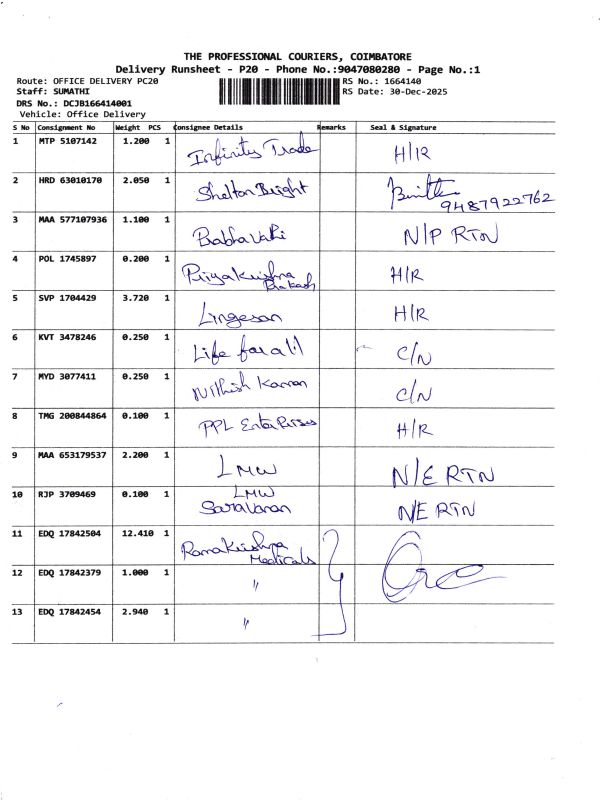 THE PROFESSIONAL COURIERS, COIMBATORE
Delivery Runsheet - P20 - Phone No.:9047080280 - Page No.:1
Route: OFFICE DELIVERY PC20 RS No.: 1664140
Staff: SUMATHI RS Date: 30-Dec-2025
DRS No.: DCJB166414001
Vehicle: Office Delivery
S No Consignment No Weight PCS Consignee Details Remarks Seal & Signature
1 MTP 5107142 1.200 1 Infinity Trade H/R
2 HRD 63010170 2.050 1 Shelton Bright
9487922762
3 MAA 577107936 1.100 1 PrabhaVathi N/P RTN
4 POL 1745897 0.200 1 Priyakrishna H/R
Prakash
5 SVP 1704429 3.720 1 Lingesan H/R
6 KVT 3478246 0.250 1 Life for all C/N
7 MYD 3077411 0.250 1 Nithish Kannan C/N
8 TMG 200844864 0.100 1 PPL EnterPrises H/R
9 MAA 653179537 2.200 1 LMW N/E RTN
10 RJP 3709469 0.100 1 LMW N/E RTN
Saravanan
11 EDQ 17842504 12.410 1 RamaKrishna
Medicals
12 EDQ 17842379 1.000 1 "
13 EDQ 17842454 2.940 1 "